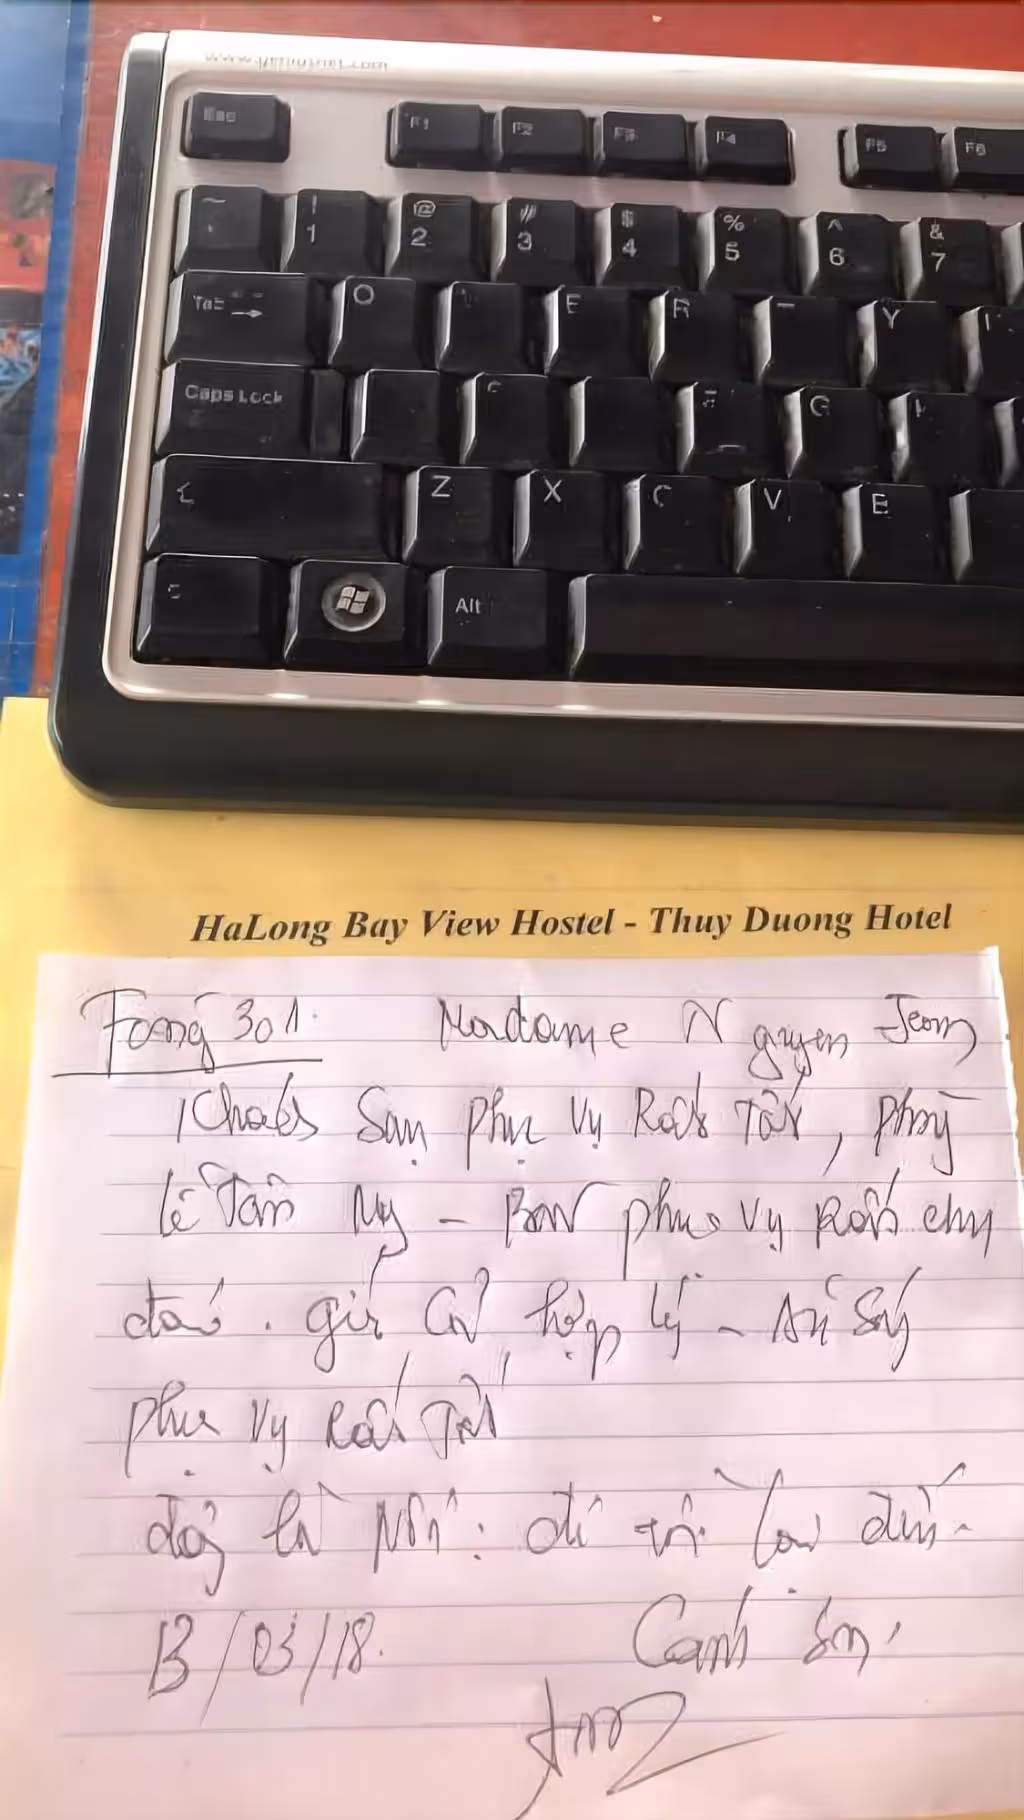 Esc F1 F2 F3 F4 F5 F6
~ ! 1 @ 2 # 3 $ 4 % 5 ^ 6 & 7
Tab O E R Y
Caps Lock G
Z X C V E
Alt
HaLong Bay View Hostel - Thuy Duong Hotel
Fong 301. Madame Nguyen Jeom
Khách Sạn phục vụ Rất Tốt, phòng
lễ Tân Ny - phục vụ Rất chu
đáo. giá cả hợp lý - Ăn Sáng
phục vụ Rất Tốt
đây là Nơi: để tôi lại đến.
13/03/18. Canh ơn.